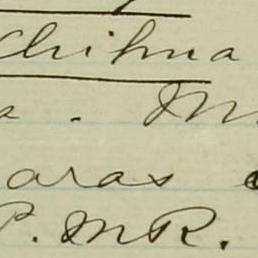 Chihua
a. M
aras
P. M R.